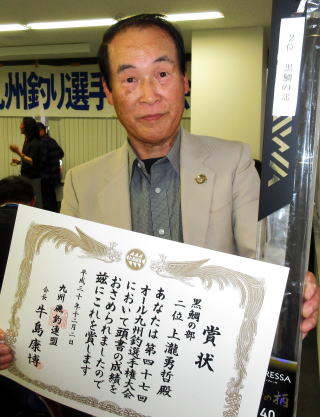 九州釣り選手
2位 黒鯛の部
DAIWA
賞状
黒鯛の部
二位 上瀧勇哲殿
あなたは第四十七回
オール九州釣選手権大会
において頭書の成績を
おさめられましたので
茲にこれを賞します
平成三十年十二月二日
九州磯釣連盟
会長 牛島康博
RESSA
の柄
40